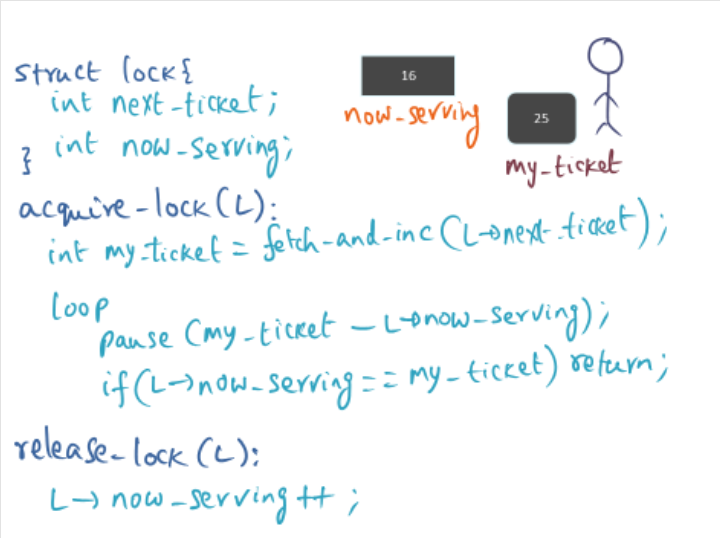 struct lock{
int next-ticket;
int now-serving;
}
16
now-serving
25
my-ticket
acquire-lock(L):
int my-ticket = fetch-and-inc(L→next-ticket);
loop
pause (my-ticket - L→now-serving);
if(L→now-serving == my-ticket) return;
release-lock(L):
L→ now-serving++;